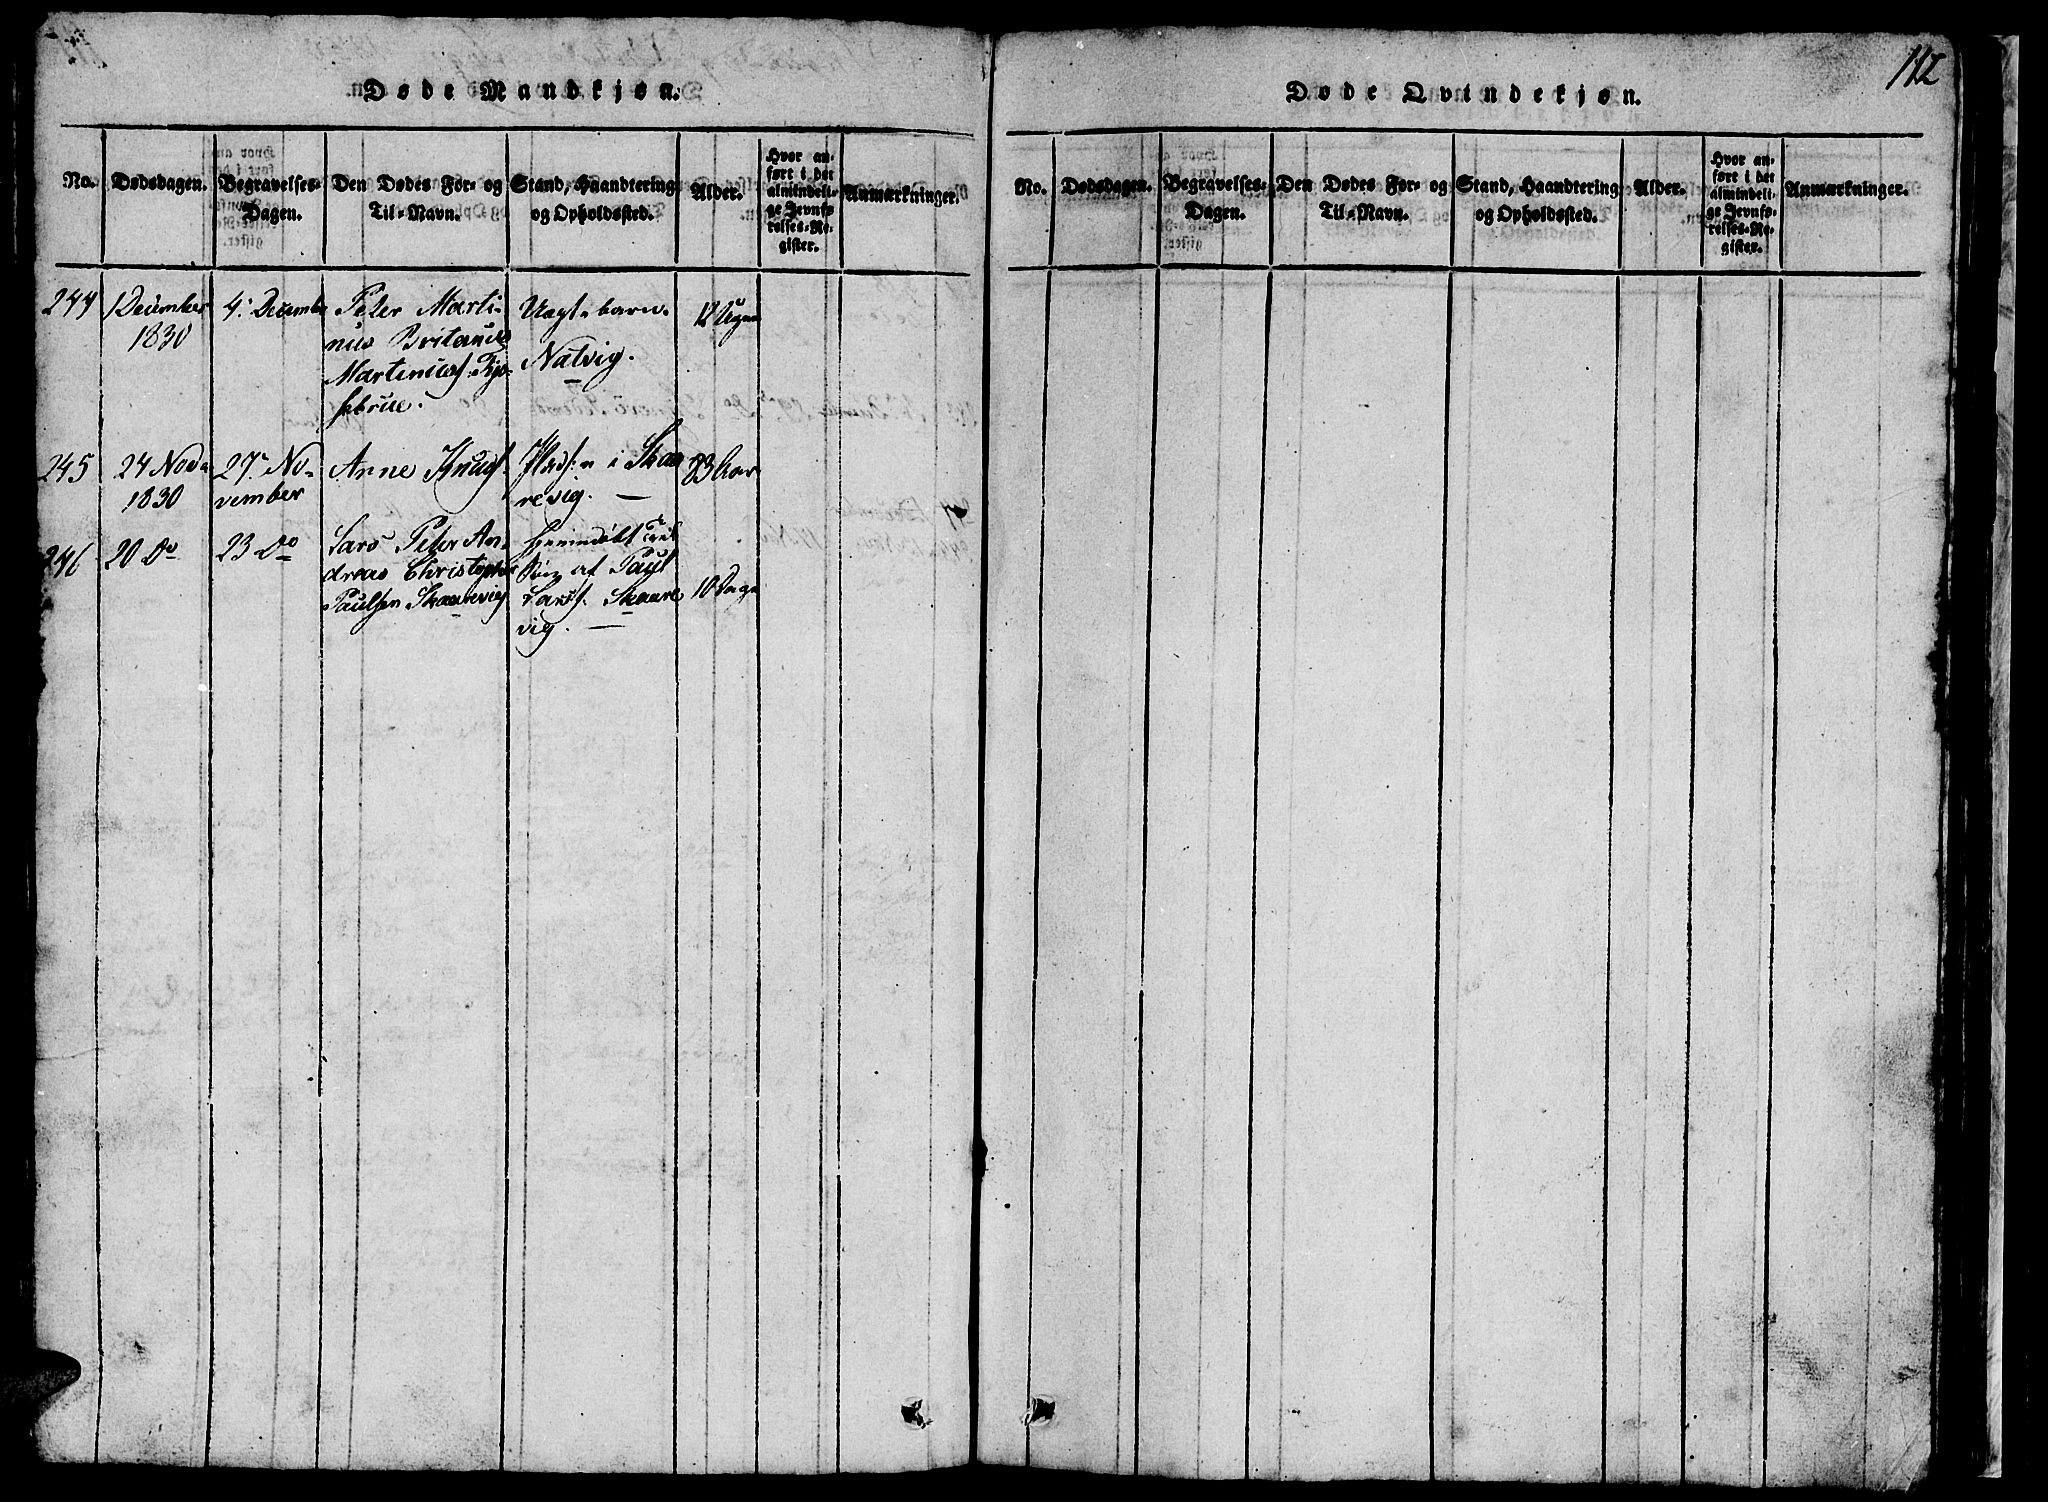 112
Døde Mandkjøn.
No.
Dødsdagen.
Begravelses-
Dagen.
Den Dødes For- og
Til-Navn.
Stand, Haandtering
og Opholdssted.
Alder.
Hvor an-
ført i det
almindeli-
ge Jevnfø-
relses-Re-
gister.
Anmærkninger.
244
1 December
1830
4. Decembr
Peter Marti-
nus Britanus
Martinius
Natvig.
12 Uger
245
24 Nov.
1830
27. No-
vember
Arne Knuds.
i Skaa
revig. —
83 Aar
246
20 Do
23 Do
Lars Peter An-
dreas Christopher
Paulsen Skaarevig
hjemmedøbt
af Paul
Lars. Skaare
vig. —
10 Dage
Døde Qvindekjøn.
No.
Dødsdagen.
Begravelses-
Dagen.
Den Dødes For- og
Til-Navn.
Stand, Haandtering
og Opholdssted.
Alder.
Hvor an-
ført i det
almindeli-
ge Jevnfø-
relses-Re-
gister.
Anmærkninger.